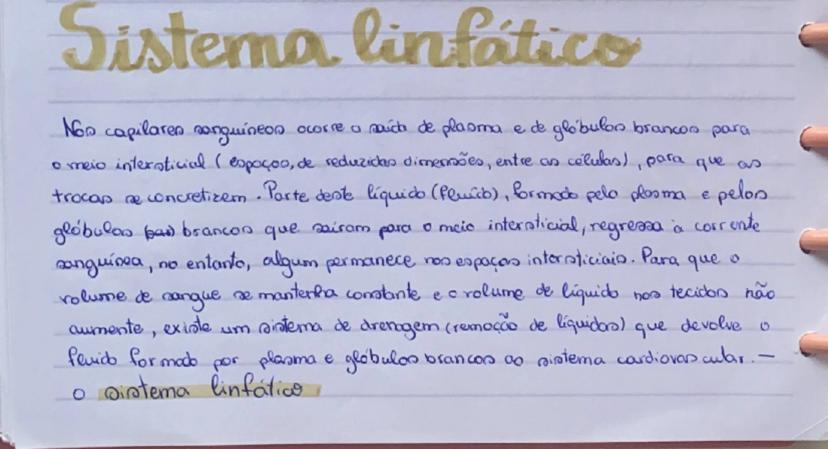 Sistema linfático
Nos capilares sanguíneos ocorre a saída de plasma e de glóbulos brancos para
o meio intersticial (espaços, de reduzidas dimensões, entre as células), para que as
trocas se concretizem. Parte deste líquido (fluído), formado pelo plasma e pelos
glóbulos brancos que saíram para o meio intersticial, regressa à corrente
sanguínea, no entanto, algum permanece nos espaços intersticiais. Para que o
volume de sangue se mantenha constante e o volume de líquido nos tecidos não
aumente, existe um sistema de drenagem (remoção de líquidos) que devolve o
fluído formado por plasma e glóbulos brancos ao sistema cardiovascular. —
o sistema linfático